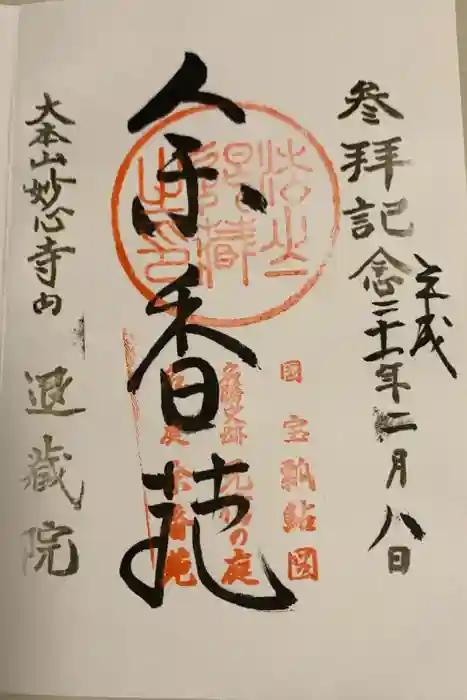 参拝記念
平成三十一年二月八日
余香苑
国宝瓢鮎図
名勝史跡元信の庭
名庭余香苑
大本山妙心寺内
退蔵院